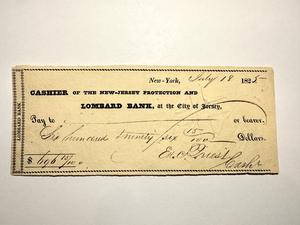 New-York, July 18 1825
CASHIER OF THE NEW-JERSEY PROTECTION AND
LOMBARD BANK, at the City of Jersey,
Pay to or bearer,
Six hundred ninety six 15/100 Dollars.
$ 696 15/100 Cash'r
LOMBARD BANK